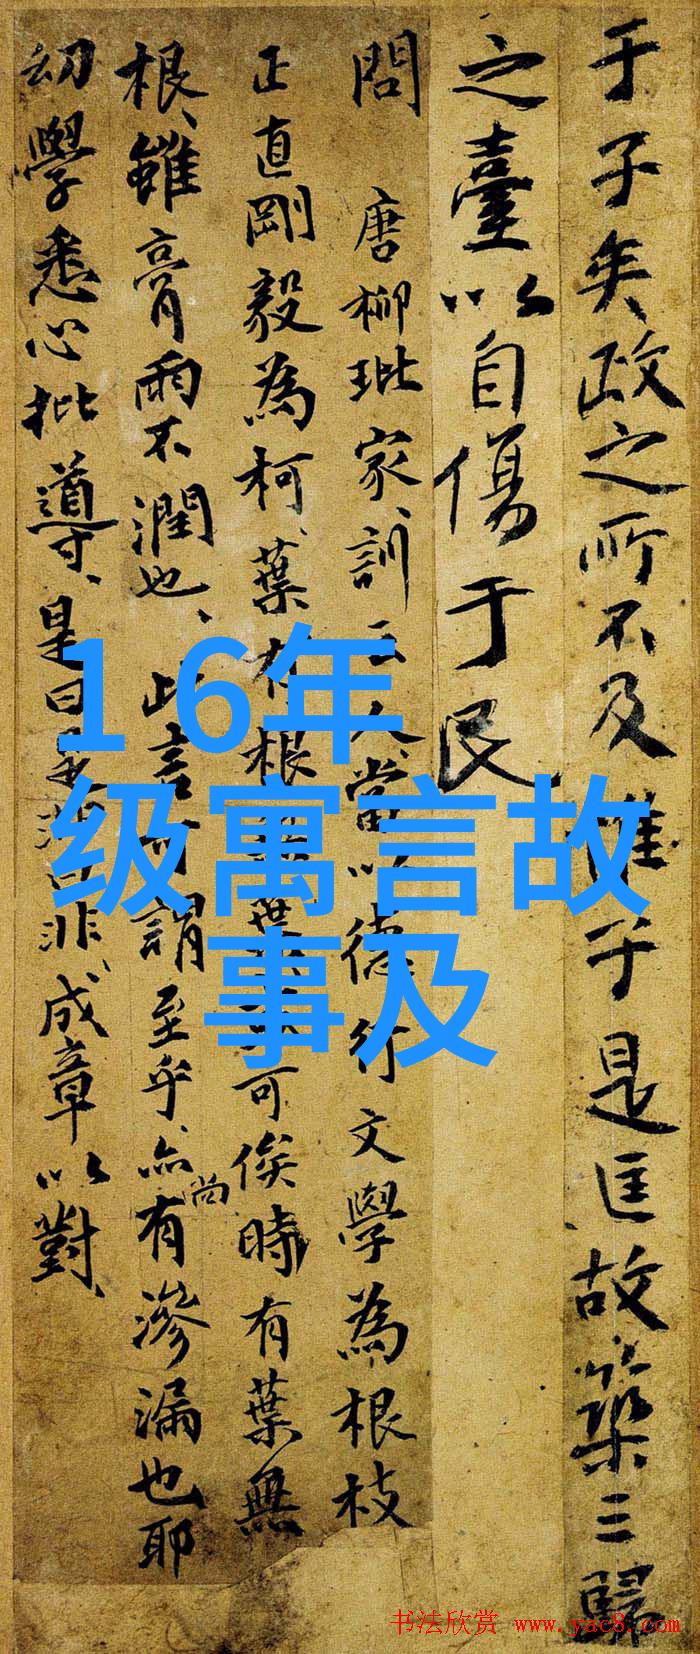 于子矣政之所不及惟于是匡故築三歸
之臺以自傷于民
問 唐柳玭家訓云人當以德行文學為根枝
正直剛毅為柯葉有根無葉或可俟時有葉無
根雖膏雨不潤也此言可謂至乎亦尚有滲漏也耶
幼學悉心批導是曰是非曰非成章以對
1 6年
级寓言故
事及
书法欣赏 www.yac8.com